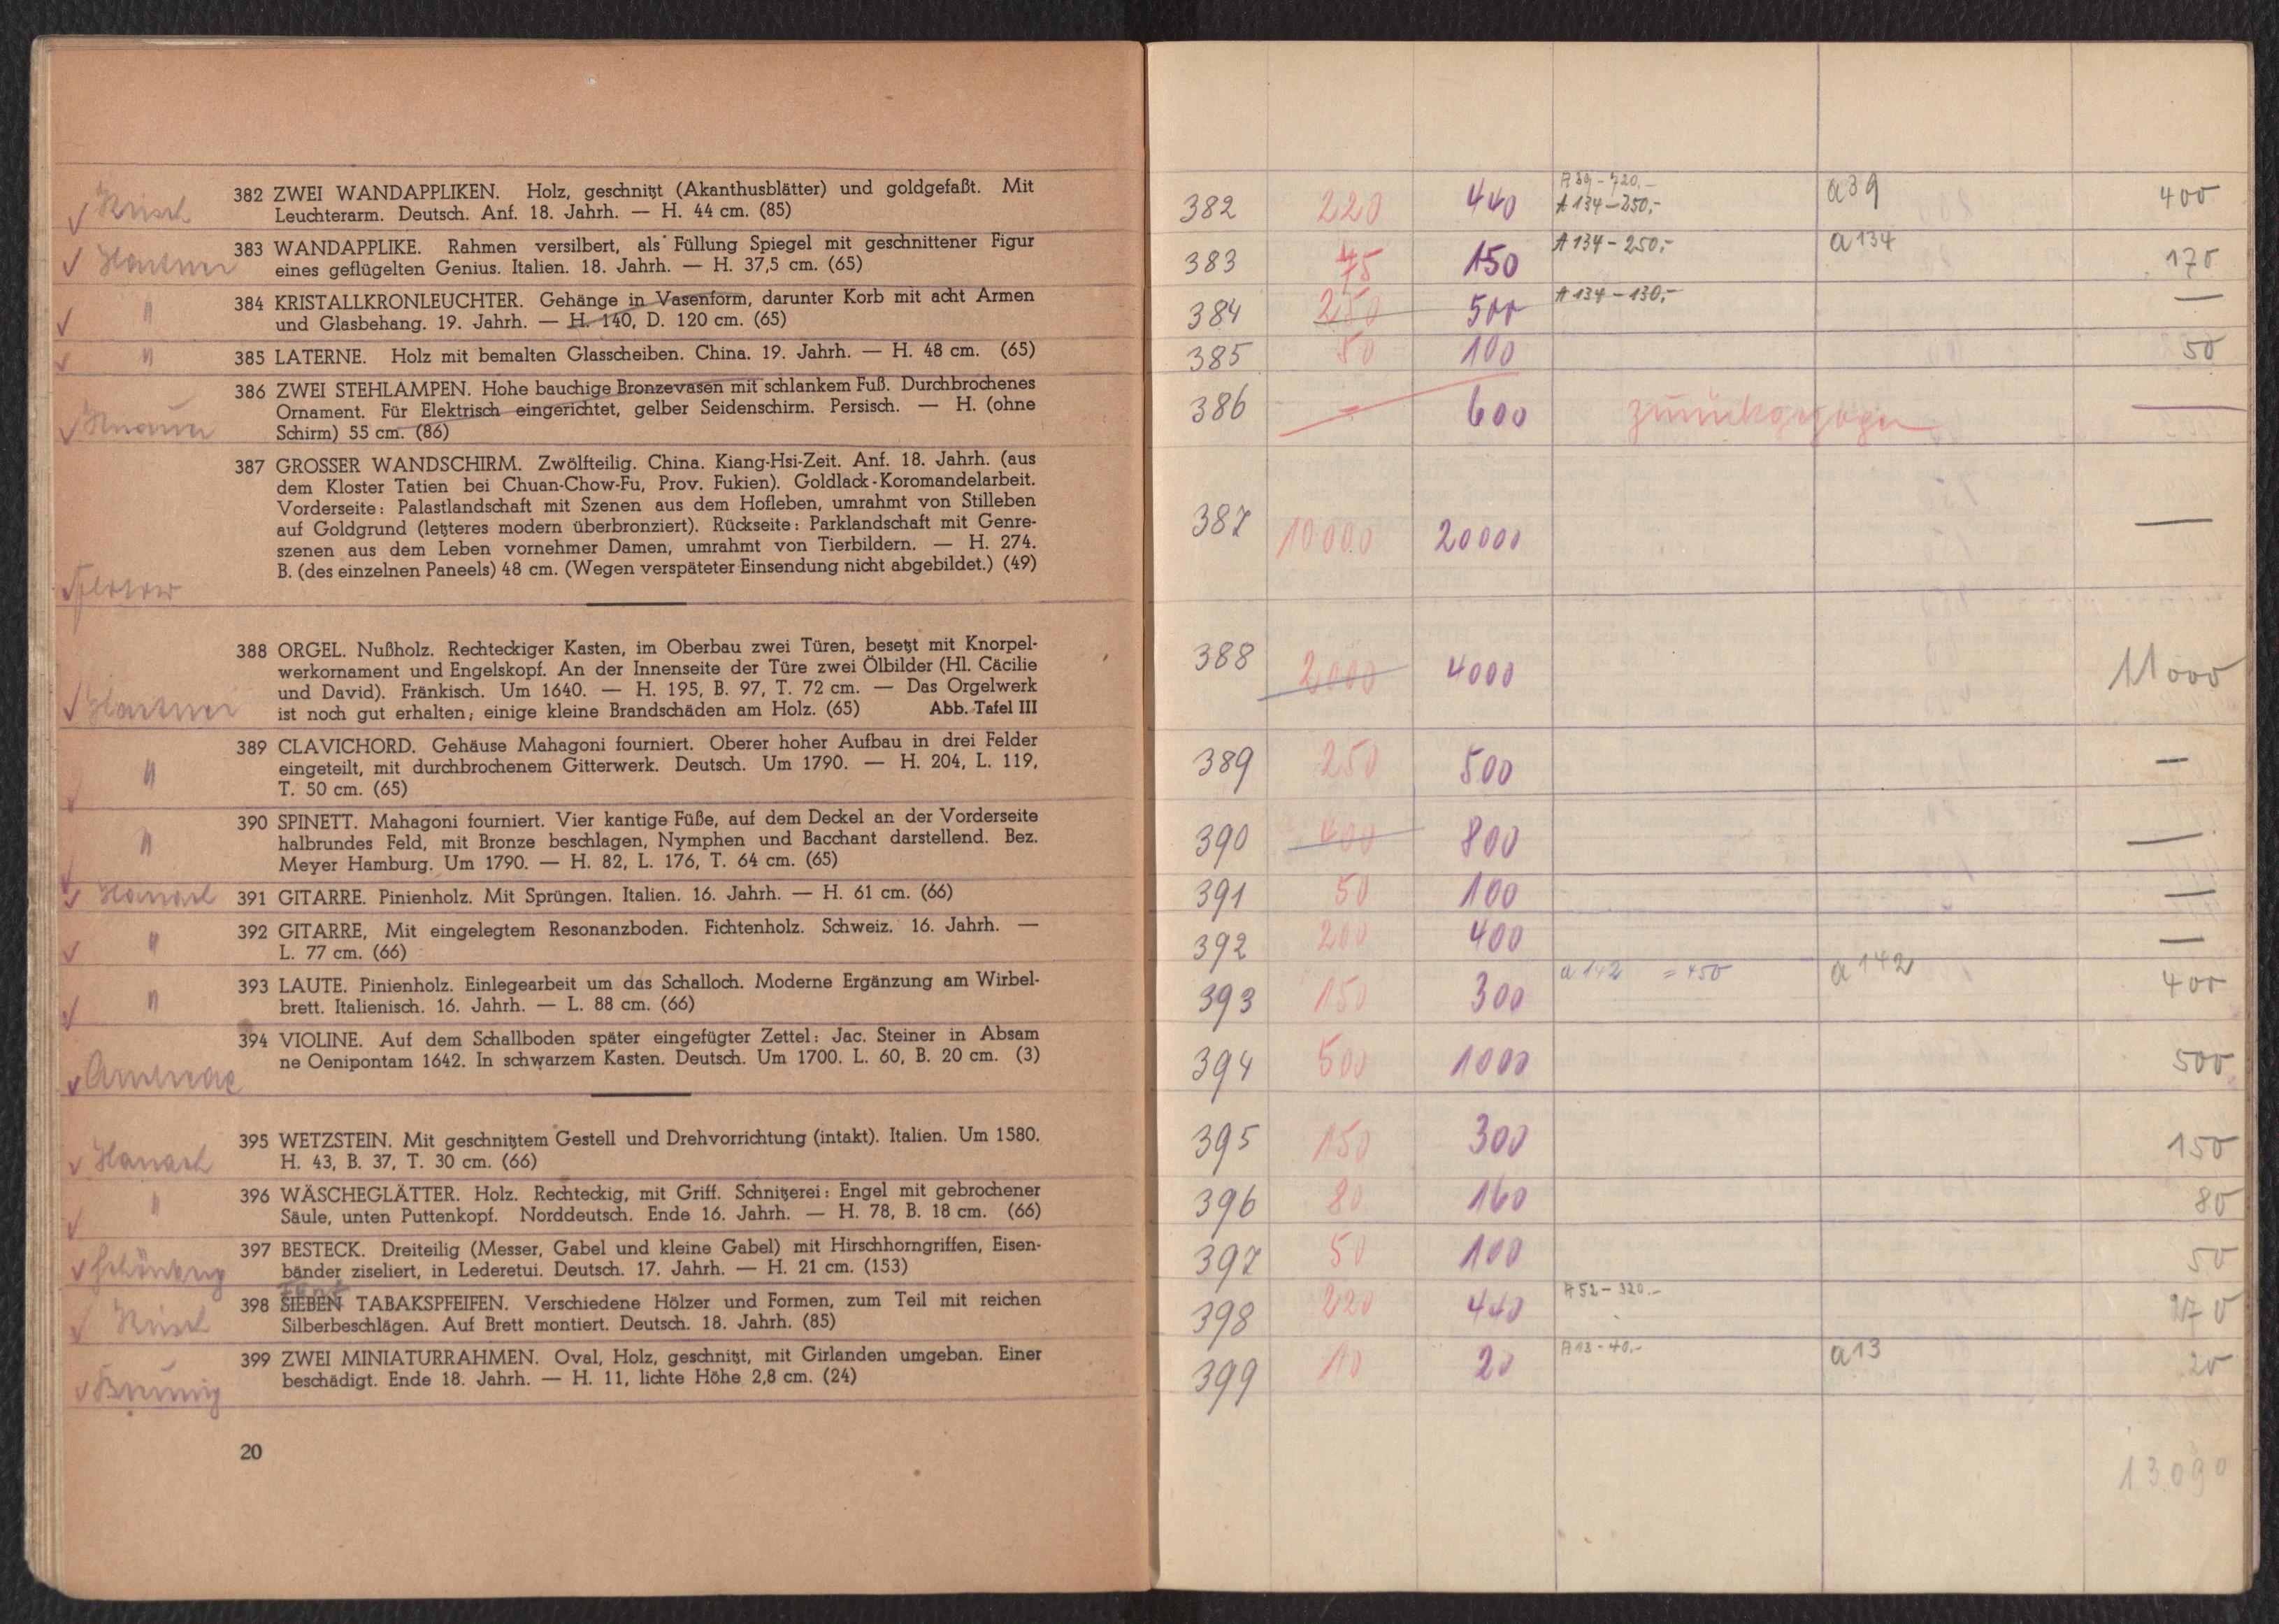 382 ZWEI WANDAPPLIKEN. Holz, geschnitzt (Akanthusblätter) und goldgefaßt. Mit
Leuchterarm. Deutsch. Anf. 18. Jahrh. — H. 44 cm. (85)
383 WANDAPPLIKE. Rahmen versilbert, als Füllung Spiegel mit geschnittener Figur
eines geflügelten Genius. Italien. 18. Jahrh. — H. 37,5 cm. (65)
" 384 KRISTALLKRONLEUCHTER. Gehänge in Vasenform, darunter Korb mit acht Armen
und Glasbehang. 19. Jahrh. — H. 140, D. 120 cm. (65)
" 385 LATERNE. Holz mit bemalten Glasscheiben. China. 19. Jahrh. — H. 48 cm. (65)
386 ZWEI STEHLAMPEN. Hohe bauchige Bronzevasen mit schlankem Fuß. Durchbrochenes
Ornament. Für Elektrisch eingerichtet, gelber Seidenschirm. Persisch. — H. (ohne
Schirm) 55 cm. (86)
387 GROSSER WANDSCHIRM. Zwölfteilig. China. Kiang-Hsi-Zeit. Anf. 18. Jahrh. (aus
dem Kloster Tatien bei Chuan-Chow-Fu, Prov. Fukien). Goldlack-Koromandelarbeit.
Vorderseite: Palastlandschaft mit Szenen aus dem Hofleben, umrahmt von Stilleben
auf Goldgrund (letzteres modern überbronziert). Rückseite: Parklandschaft mit Genre-
szenen aus dem Leben vornehmer Damen, umrahmt von Tierbildern. — H. 274.
B. (des einzelnen Paneels) 48 cm. (Wegen verspäteter Einsendung nicht abgebildet.) (49)
388 ORGEL. Nußholz. Rechteckiger Kasten, im Oberbau zwei Türen, besetzt mit Knorpel-
werkornament und Engelskopf. An der Innenseite der Türe zwei Ölbilder (Hl. Cäcilie
und David). Fränkisch. Um 1640. — H. 195, B. 97, T. 72 cm. — Das Orgelwerk
ist noch gut erhalten; einige kleine Brandschäden am Holz. (65) Abb. Tafel III
389 CLAVICHORD. Gehäuse Mahagoni fourniert. Oberer hoher Aufbau in drei Felder
" eingeteilt, mit durchbrochenem Gitterwerk. Deutsch. Um 1790. — H. 204, L. 119,
T. 50 cm. (65)
390 SPINETT. Mahagoni fourniert. Vier kantige Füße, auf dem Deckel an der Vorderseite
" halbrundes Feld, mit Bronze beschlagen, Nymphen und Bacchant darstellend. Bez.
Meyer Hamburg. Um 1790. — H. 82, L. 176, T. 64 cm. (65)
391 GITARRE. Pinienholz. Mit Sprüngen. Italien. 16. Jahrh. — H. 61 cm. (66)
" 392 GITARRE, Mit eingelegtem Resonanzboden. Fichtenholz. Schweiz. 16. Jahrh. —
L. 77 cm. (66)
393 LAUTE. Pinienholz. Einlegearbeit um das Schalloch. Moderne Ergänzung am Wirbel-
" brett. Italienisch. 16. Jahrh. — L. 88 cm. (66)
394 VIOLINE. Auf dem Schallboden später eingefügter Zettel: Jac. Steiner in Absam
ne Oenipontam 1642. In schwarzem Kasten. Deutsch. Um 1700. L. 60, B. 20 cm. (3)
Andreae
395 WETZSTEIN. Mit geschnitztem Gestell und Drehvorrichtung (intakt). Italien. Um 1580.
H. 43, B. 37, T. 30 cm. (66)
396 WÄSCHEGLÄTTER. Holz. Rechteckig, mit Griff. Schnitzerei: Engel mit gebrochener
" Säule, unten Puttenkopf. Norddeutsch. Ende 16. Jahrh. — H. 78, B. 18 cm. (66)
397 BESTECK. Dreiteilig (Messer, Gabel und kleine Gabel) mit Hirschhorngriffen, Eisen-
bänder ziseliert, in Lederetui. Deutsch. 17. Jahrh. — H. 21 cm. (153)
398 SIEBEN TABAKSPFEIFEN. Verschiedene Hölzer und Formen, zum Teil mit reichen
Silberbeschlägen. Auf Brett montiert. Deutsch. 18. Jahrh. (85)
399 ZWEI MINIATURRAHMEN. Oval, Holz, geschnitzt, mit Girlanden umgeban. Einer
beschädigt. Ende 18. Jahrh. — H. 11, lichte Höhe 2,8 cm. (24)
20
A 39 -
382 220 440 A 134 - 250,- a 39 400
383 75 150 A 134 - 250,- a 134 170
384 250 500 A 134 - 130,- —
385 50 100 50
386 — 600 zurückgezogen —
387 10000 20000 —
388 2000 4000 11000
389 250 500 —
390 400 800 —
391 50 100 —
392 200 400 —
393 150 300 a 142 = 450 a 142 400
394 500 1000 500
395 150 300 150
396 80 160 80
397 50 100 50
398 220 440 A 52 - 320.- 270
399 10 20 A 13 - 40.- a 13 20
13.090